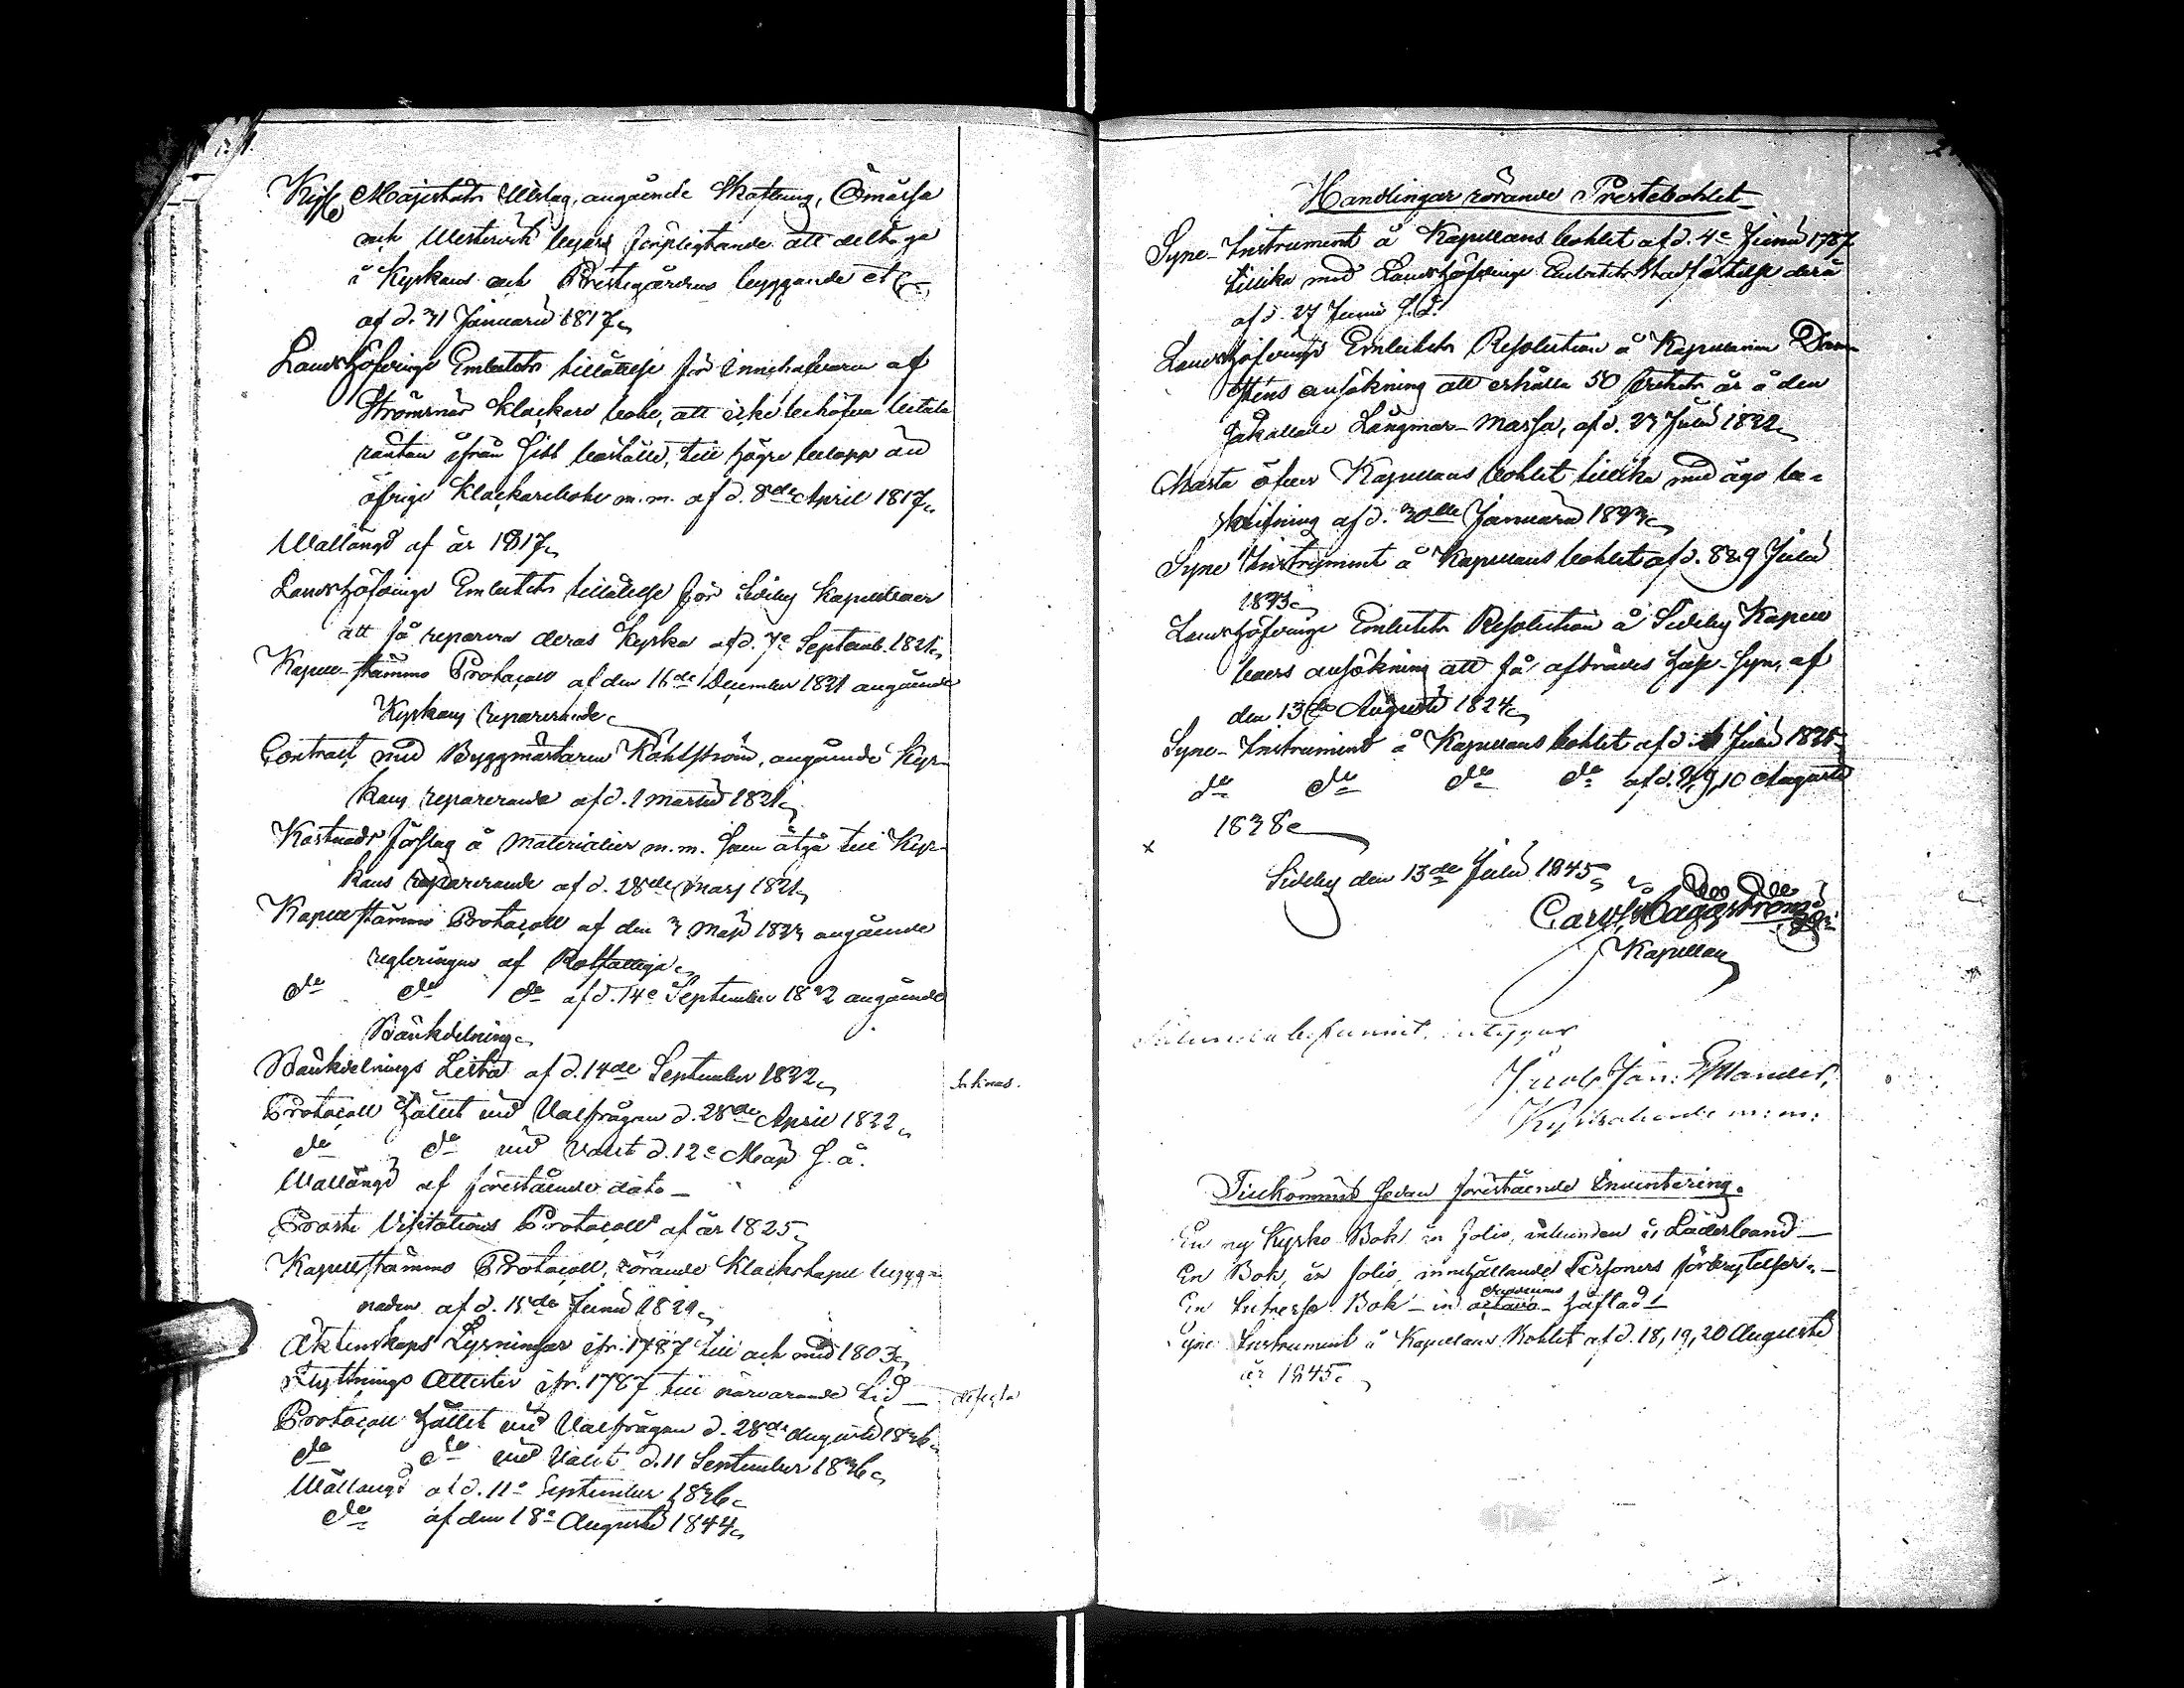 Majestets Utslag, angående Skaftung, Ömåssa
och Westervik byars förpligtande att deltaga
i Kyrkans och Prestegårdens byggande etc
af d. 31 Januarii 1817.
Landshöfdinge Embetets tillåtelse för innehafvaren af
Strömsnäs klockare bohl, att icke behöfva betala
räntan ifrån sitt boställe, till högre belopp än
öfrige klockarebohl m.m. af d. 8de April 1817.
Wallängd af år 1817.
Landshöfdinge Embetets tillåtelse för Sideby Kapellboer
att få reparera deras Kyrka af d. 7e Septemb. 1821.
Kapell-stämmo Protocoll af den 16de December 1821 angående
Kyrkans reparerande.
Contract med Byggmästaren Kohlström, angående Kyr-
kans reparerande af d. 1 Martii 1821.
Kostnads förslag å Materialier m.m. som åtgå till Kyr-
kans reparerande af d. 28de Maj 1821.
Kapellstämmo Protocoll af den 3 Maji angående
regleringen af Rotfattiga.
do do do af d. 14e September angående
Bänkdelning.
Bänkdelnings Lista af d. 14de September
Protocoll hållit vid Valfrågan d. 28de April 1822.
do do vid Valet d. 12e Maji s. å.
Wallängd af förestående dato —
Prosts Visitations Protocoll af år 1825.
Kapellstämmo Protocoll, rörande Klockstapel bygg-
naden af d. 15de Junii
Äktenskaps Lysningar ifr. 1787 till och med 1803.
Flyttnings Attester ifr. 1787 till närvarande tid — defecta
Protocoll hållit vid Valfrågan d. 28de Augusti 1836.
do do vid Valet d. 11 September 1836.
Wallängd af d. 11e September 1836.
do af den 18e Augusti 1844.
Handlingar rörande Prestebohlet
Syne-Instrument å Kapellans bohlet af d. 4e Junii 1787
tillika med Landshöfdinge Embetets stadfästelse derå
af d. 27 Junii s. å.
Landshöfdinge Embetets Resolution å Kapellanen
ansökning att erhålla 50 år å den
såkallade Långmar-Mossa, af d. 27 Julii 1822.
Charta öfver Kapellans bohlet tillika med ägo be-
skrifning af d. 30de Januarii
Syne Instrument å Kapellans bohlet af d. 8 & 9 Julii
Landshöfdinge Embetets Resolution å Sideby Kapell
boers ansökning att få afträdes hus-syn, af
den 13de Augusti 1824.
Syne-Instrument å Kapellans bohlet af d. Julii 1825.
do do do do af d. 8, 9, 10 Augusti
1838.
x
Sideby den 13de Julii 1845.
Carl Häggström
Kapellan
befunnit, intygar
Jacob Joh:
Kyrkoherde m:m:
Tillkommit sedan förestående Inventering.
En ny Kyrko Bok in folio, inbunden i Läderband —
En Bok, in folio, innehållande Personers förbrytelser. —
En Intresse Bok — in octavo — häftad
Syne Instrument å Kapellans Bohlet af d. 18, 19, 20 Augusti
år 1845.